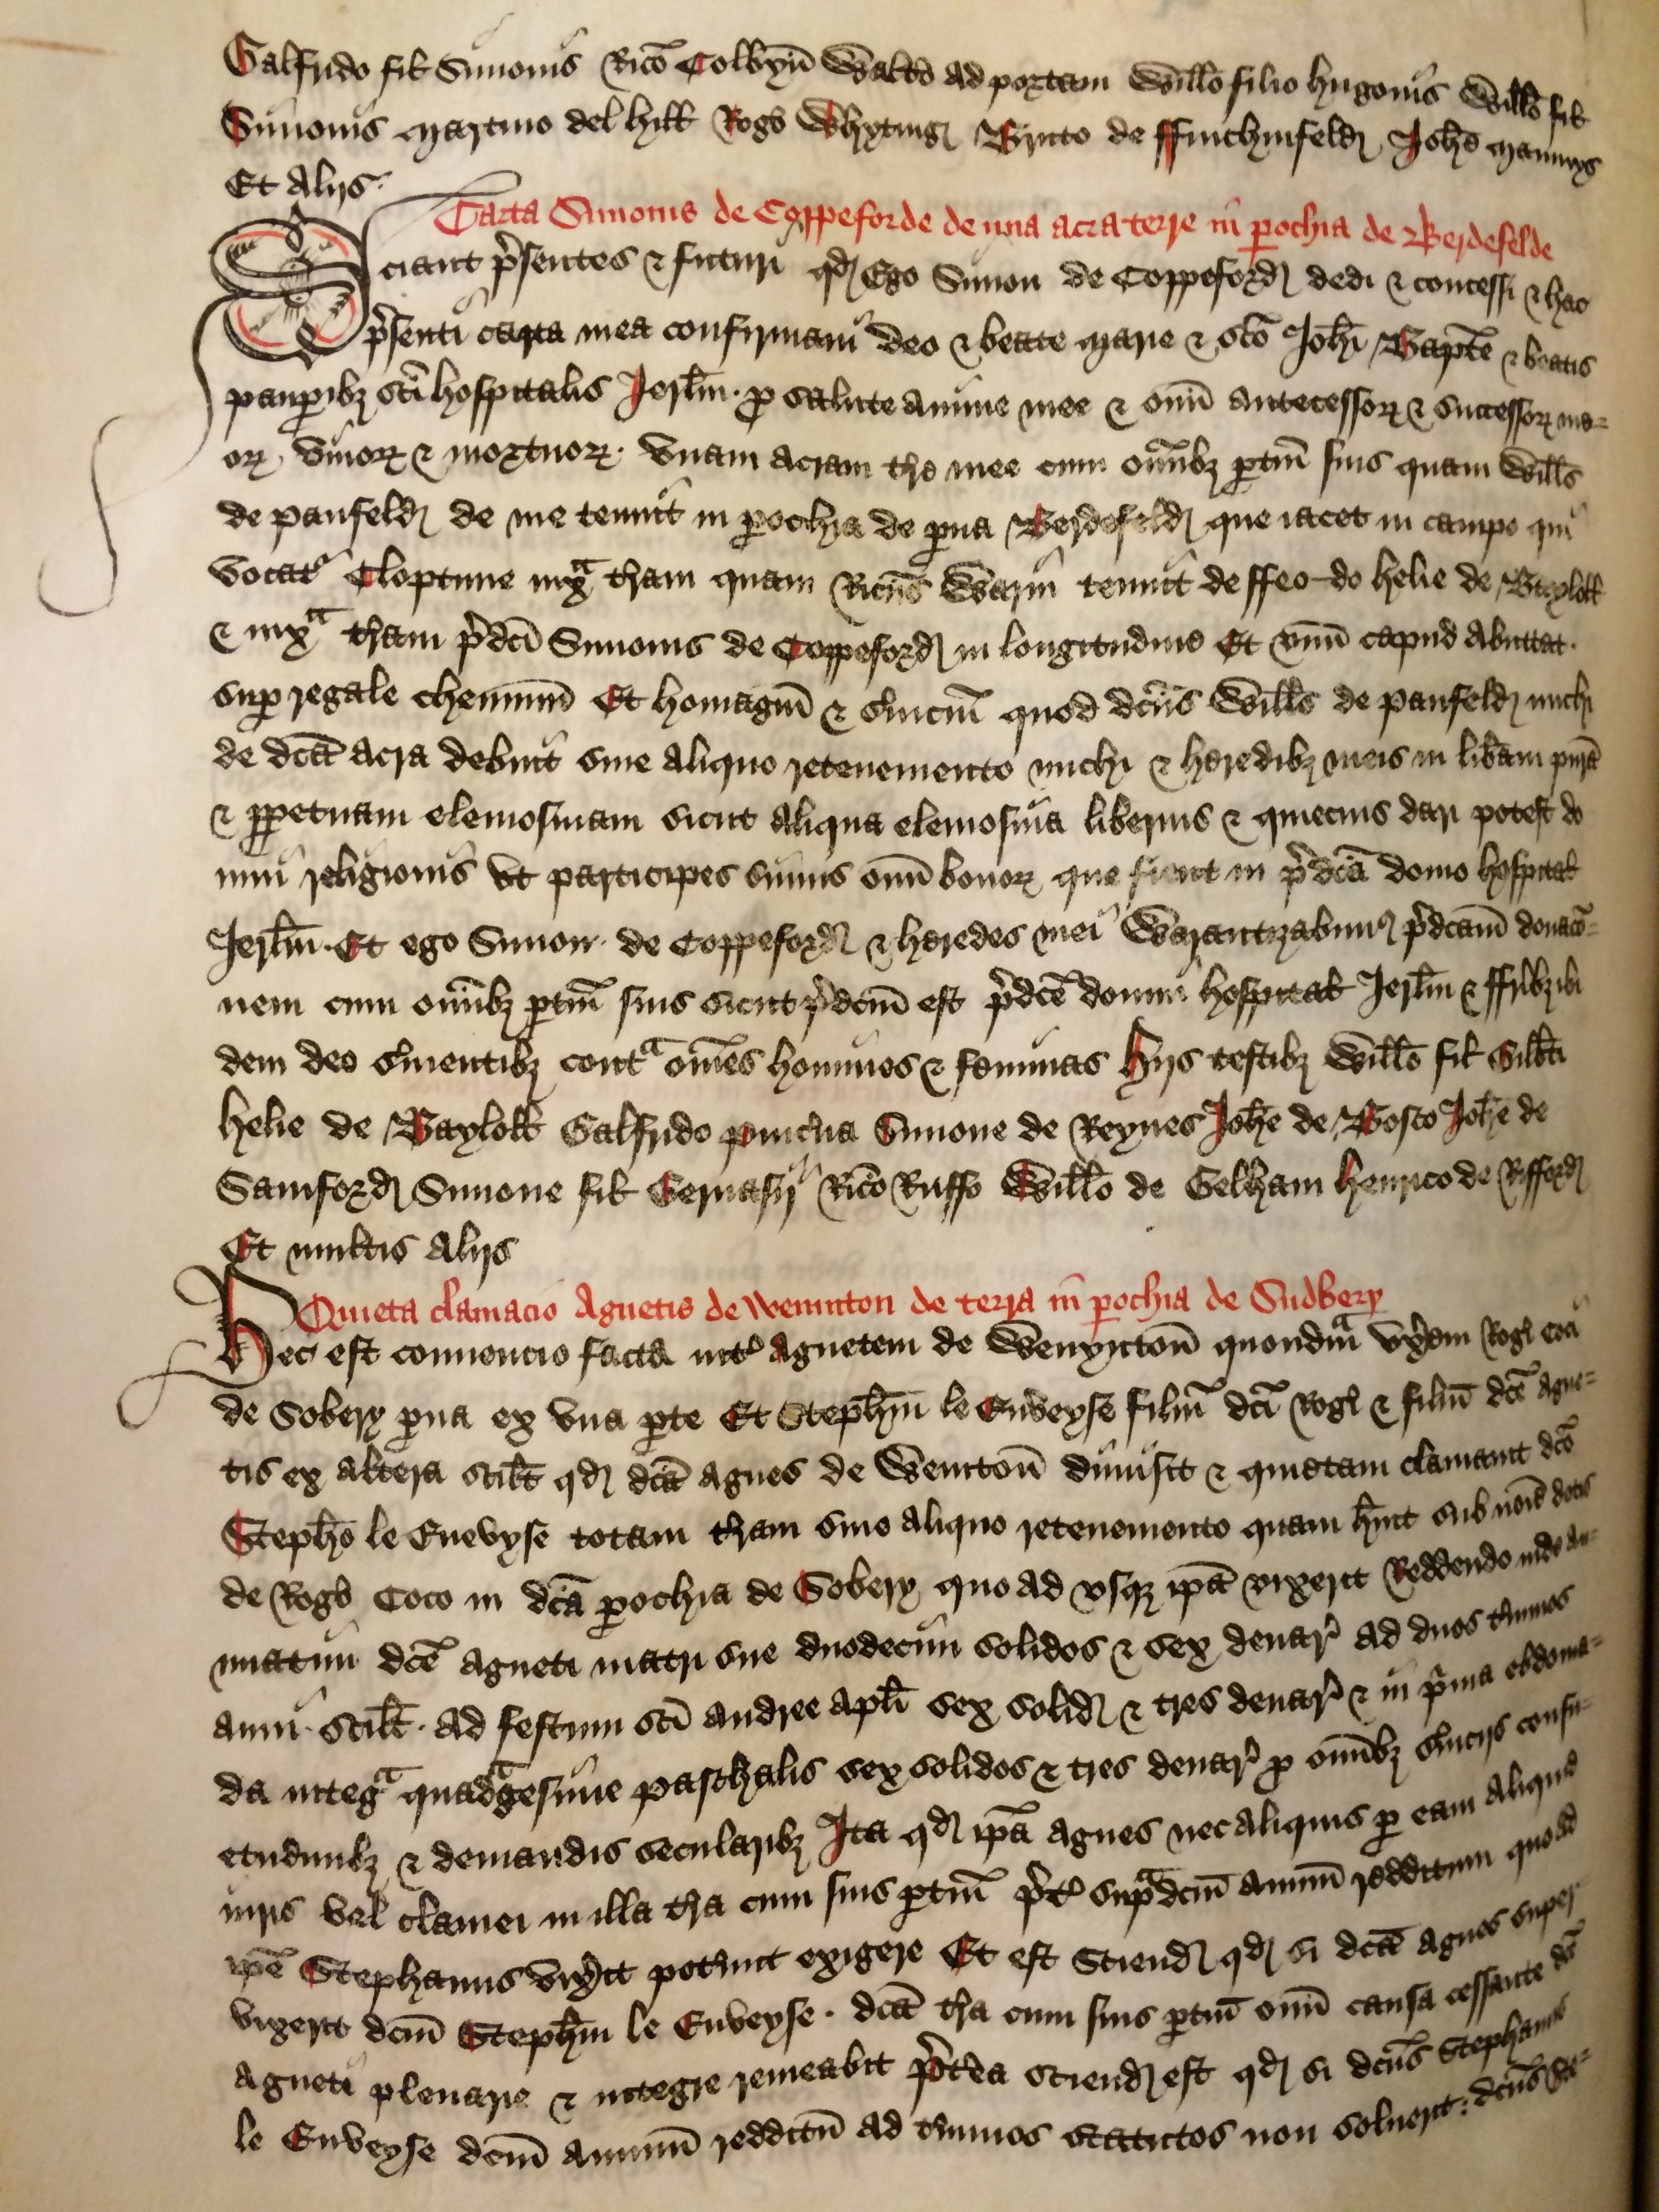 Galfrido fil Simonis Rico Colbyn Walto ad portam Willo filio hugonis Willo fil
Simonis Martino del hill Rogo Whyting Brito de ffinchinfeld Johe Mannyg
Et Alijs
Carta Simonis de Coppeforde de una acra terre in pochia de Berdefelde
Sciant psentes & futuri qd Ego Simon de Coppeford dedi & concessi & hac
psenti carta mea confirmavi deo & beate Marie & sco Johi Bapte & beatis
pauperibz sci hospitalis Jerlm p salute anime mee & omi antecessor & successor me=
or vivor & mortuor Unam acram tre mee cum omibz ptin suis quam Wills
de panfeld de me tenuit in pochia de pva Berdefeld que iacet in campo qui
vocat Cloptune iuxa tram quam Ricus Warin tenuit de ffeo do helie de Bayloll
& iuxa tram pdci Simonis de Coppeford in longitudine Et unu capud Abuttat
sup regale cheminu Et homagiu & svicm quod dcus Wills de panfeld michi
de dca acra debuit sine aliquo retenemento michi & heredibz meis in libam pura
& ppetuam elemosinam sicut aliqua elemosina liberius & quiecius dari potest do
mui religionis Ut participes simus omi bonor que fient in pdca domo hospital
Jerlm Et ego Simon de Coppeford & heredes mei Warantizabim pdcam donaco=
nem cum omibz ptin suis sicut pdcm est pdce domui hospital Jerlm & ffribz ibi
dem deo svientibz conta omes homines & feminas hijs testibz Willo fil Gilbti
helie de Bayloll Galfrido Simone de Reynes Johe de Bosco Johe de
Samford Simone fil Gervasij Rico Ruffo Willo de Gelham henrico de Rifford
Et multis Alijs
Quieta clamacio Agnetis de Weninton de terra in pochia de Sudbery
Hec est convencio facta int Agnetem de Wenyntoun quondm uxem Rogi coci
de Sobery pva ex una pte Et Stephm le Enveyse filiu dci Rogi & filiu dce Agne=
tis ex altera scilt qd dca Agnes de Weintoun dimisit & quietam clamavit dco
Stepho le Enevyse totam tram sine aliquo retenemento quam huit sub noie dotis
de Rogo Coco in dca pochia de Sobery quo ad usq ipa vixerit Reddendo inde an=
nuatim dce Agneti matri sue duodecim solidos & sex denar ad duos tminos
anni scilt Ad festum sci Andree apli sex solid & tres denar & in pma ebdoma=
da intega quadagesime paschalis sex solidos & tres denar p omibz sviciis consu=
etudinibz & demandis secularibz Ita qd ipa Agnes nec aliquis p eam Aliquid
iuris vel clamei in illa tra cum suis ptin pt supadcm annuu redditum quo ad
ipe Stephanus vixit potint exigere Et est Sciend qd si dca Agnes super
vixerit dcm Stephm le Enveyse dca tra cum suis ptin omi causa cessante dce
Agneti plenarie & integre remeabit ptea sciend est qd si dcus Stephanus
le Enveyse dcm annuu redditu ad tminos statutos non solverit dcus Ste=